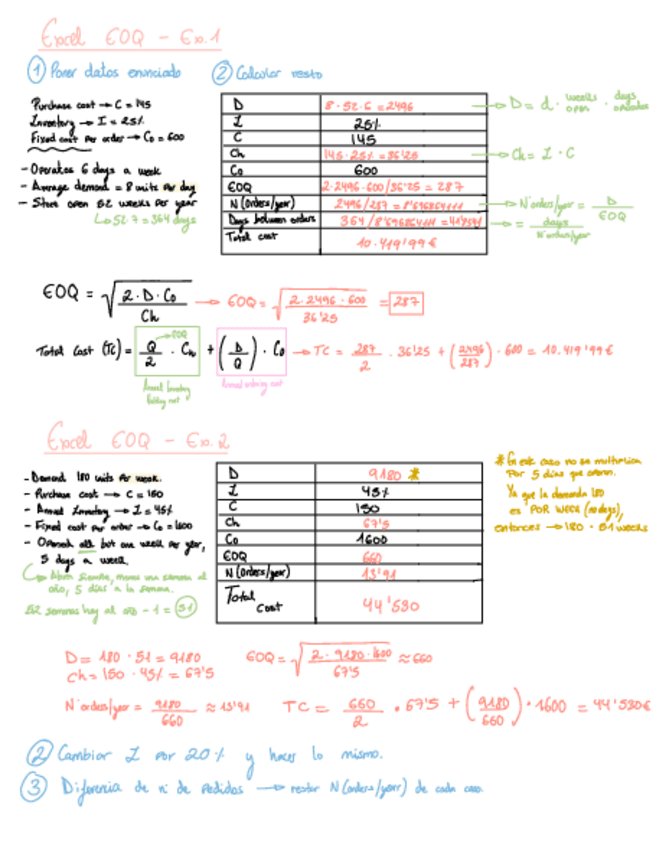 Excel EOQ - Ex.1
① Poner datos enunciado ② Calcular resto
Purchase cost → C = 145
Inventory → I = 25%
Fixed cost per order → Co = 600
- Operates 6 days a week
- Average demand = 8 units per day
- Store open 52 weeks per year
↳ 52·7 = 364 days
D 8·52·6 = 2496 → D = d · weeks open · days operades
I 25%
C 145
Ch 145·25% = 36'25 → Ch = I · C
Co 600
EOQ 2·2496·600/36'25 = 287
N (orders/year) 2496/287 = 8'696864111 → N orders/year = D / EOQ
Days between orders 364/8'696864111 = → = days / N orders/year
Total cost 10.419'99 €
EOQ = √(2·D·Co / Ch) → EOQ = √(2·2496·600 / 36'25) = 287
→ EOQ
Total Cost (TC) = Q/2 · Ch + (D/Q) · Co → TC = 287/2 · 36'25 + (2496/287) · 600 = 10.419'99 €
Annual Inventory holding cost Annual ordering cost
Excel EOQ - Ex.2
- Demand 180 units per week.
- Purchase cost → C = 150
- Annual Inventory → I = 45%
- Fixed cost per order → Co = 1600
- Opened all but one week per year,
5 days a week.
↳ Abren siempre, menos una semana al
año, 5 días a la semana.
52 semanas hay al año - 1 = 51
D 9180 *
I 45%
C 150
Ch 67'5
Co 1600
EOQ 660
N (orders/year) 13'91
Total cost 44'530
* En este caso no se multiplica
por 5 días que abren.
Ya que la demanda 180
es POR WEEK (no days),
entonces → 180 · 51 weeks
D = 180 · 51 = 9180
Ch = 150 · 45% = 67'5
EOQ = √(2·9180·1600 / 67'5) ≈ 660
N orders/year = 9180/660 ≈ 13'91 TC = 660/2 · 67'5 + (9180/660) · 1600 = 44'530€
② Cambiar I por 20% y haces lo mismo.
③ Diferencia de nº de pedidos → restar N (orders/year) de cada caso.